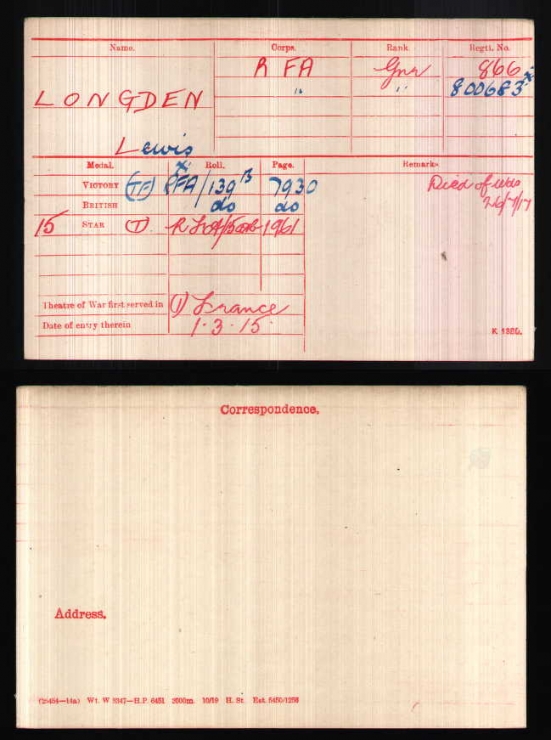 Name. Corps. Rank Regtl. No.
R FA Gnr 866
LONGDEN " " 800683
Lewis
Medal. Roll. Page. Remarks
VICTORY (TF) RFA/139 B 7930 Died of wds
BRITISH do do 26/7/17
15 STAR 1961
Theatre of War first served in (1) France
Date of entry therein 1.3.15.
K 1380.
Correspondence.
Address.
Wt. W 5347—H.P. 6451 2000m. 10/19 H. St.